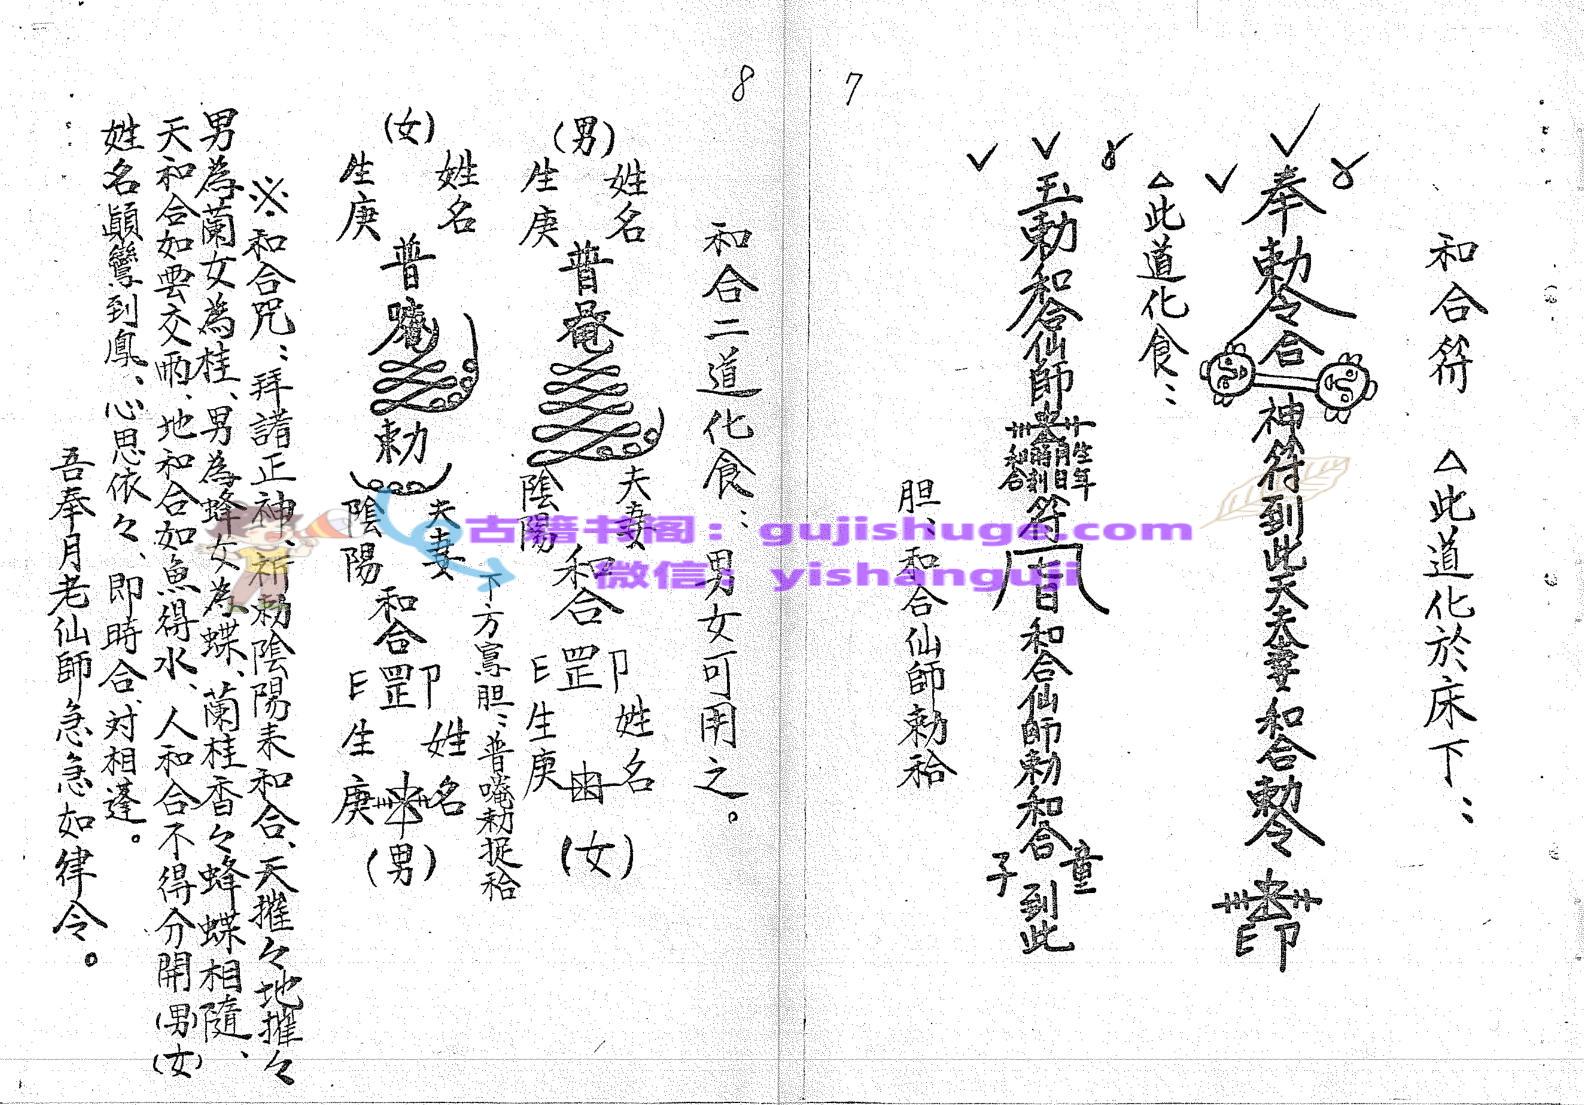 7
和合符　△此道化於床下：
奉勅令合神符到此天夫妻和合勅令
印
△此道化食：
玉勅和合仙師
生年
月日
和合
符
和合仙師勅和合
童子
到此
胆、和合仙師勅袷
8
和合二道化食：男女可用之。
(男)
姓名
生庚
普唵
夫妻
陰陽
和合
罡
印
姓名
生庚
(女)
下方寫胆：普唵勅捉袷
(女)
姓名
生庚
普唵
勅
夫妻
陰陽
和合
罡
印
姓名
生庚
(男)
※和合咒：拜諸正神、祈勅陰陽來和合、天摧々地摧々
男為蘭女為桂、男為蜂女為蝶、蘭桂香々蜂蝶相隨、
天和合如雲交雨、地和合如魚得水、人和合不得分開(男)(女)
姓名顛鸞到鳳、心思依々、即時合、対相逢。
吾奉月老仙師急急如律令。
古籍书阁：gujishuge.com
微信：yishanguji